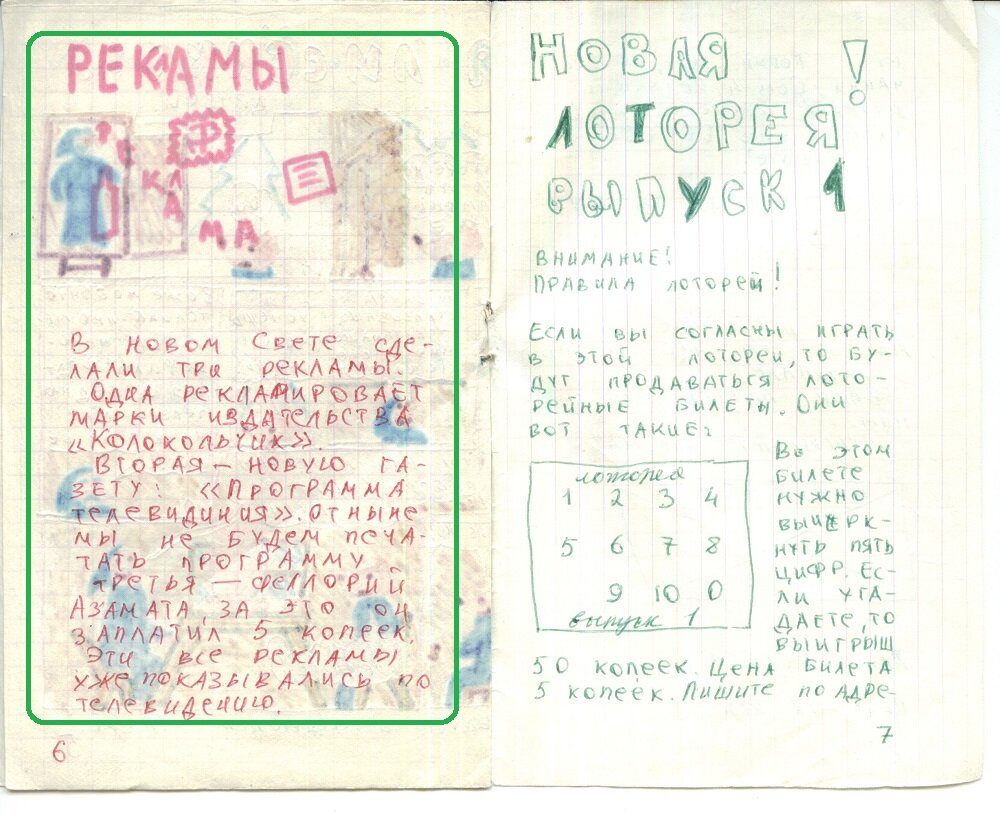 РЕКЛАМЫ
Ф
РЕКЛАМА
В НОВОМ СВЕТЕ СДЕ-
ЛАЛИ ТРИ РЕКЛАМЫ.
ОДНА РЕКЛАМИРОВАЕТ
МАРКИ ИЗДАТЕЛЬСТВА
«КОЛОКОЛЬЧИК».
ВТОРАЯ — НОВУЮ ГА-
ЗЕТУ: «ПРОГРАММА
ТЕЛЕВИДИНИЯ». ОТНЫНЕ
МЫ НЕ БУДЕМ ПЕЧА-
ТАТЬ ПРОГРАММУ.
ТРЕТЬЯ — ФЕЛЛОРИЙ
АЗАМАТА, ЗА ЭТО ОН
ЗАПЛАТИЛ 5 КОПЕЕК.
ЭТИ ВСЕ РЕКЛАМЫ
УЖЕ ПОКАЗЫВАЛИСЬ ПО
ТЕЛЕВИДЕНИЮ.
6
НОВАЯ
ЛОТОРЕЯ!
ВЫПУСК 1
ВНИМАНИЕ!
ПРАВИЛА ЛОТОРЕЙ!
ЕСЛИ ВЫ СОГЛАСНЫ ИГРАТЬ
В ЭТОЙ ЛОТОРЕИ, ТО БУ-
ДУТ ПРОДАВАТЬСЯ ЛОТО-
РЕЙНЫЕ БИЛЕТЫ. ОНИ
ВОТ ТАКИЕ:
лоторея
1 2 3 4
5 6 7 8
9 10 0
выпуск 1
ВО ЭТОМ
БИЛЕТЕ
НУЖНО
ВЫЧЕРК-
НУТЬ ПЯТЬ
ЦИФР. ЕС-
ЛИ УГА-
ДАЕТЕ, ТО
ВЫИГРЫШ
50 КОПЕЕК. ЦЕНА БИЛЕТА
5 КОПЕЕК. ПИШИТЕ ПО АДРЕ-
7